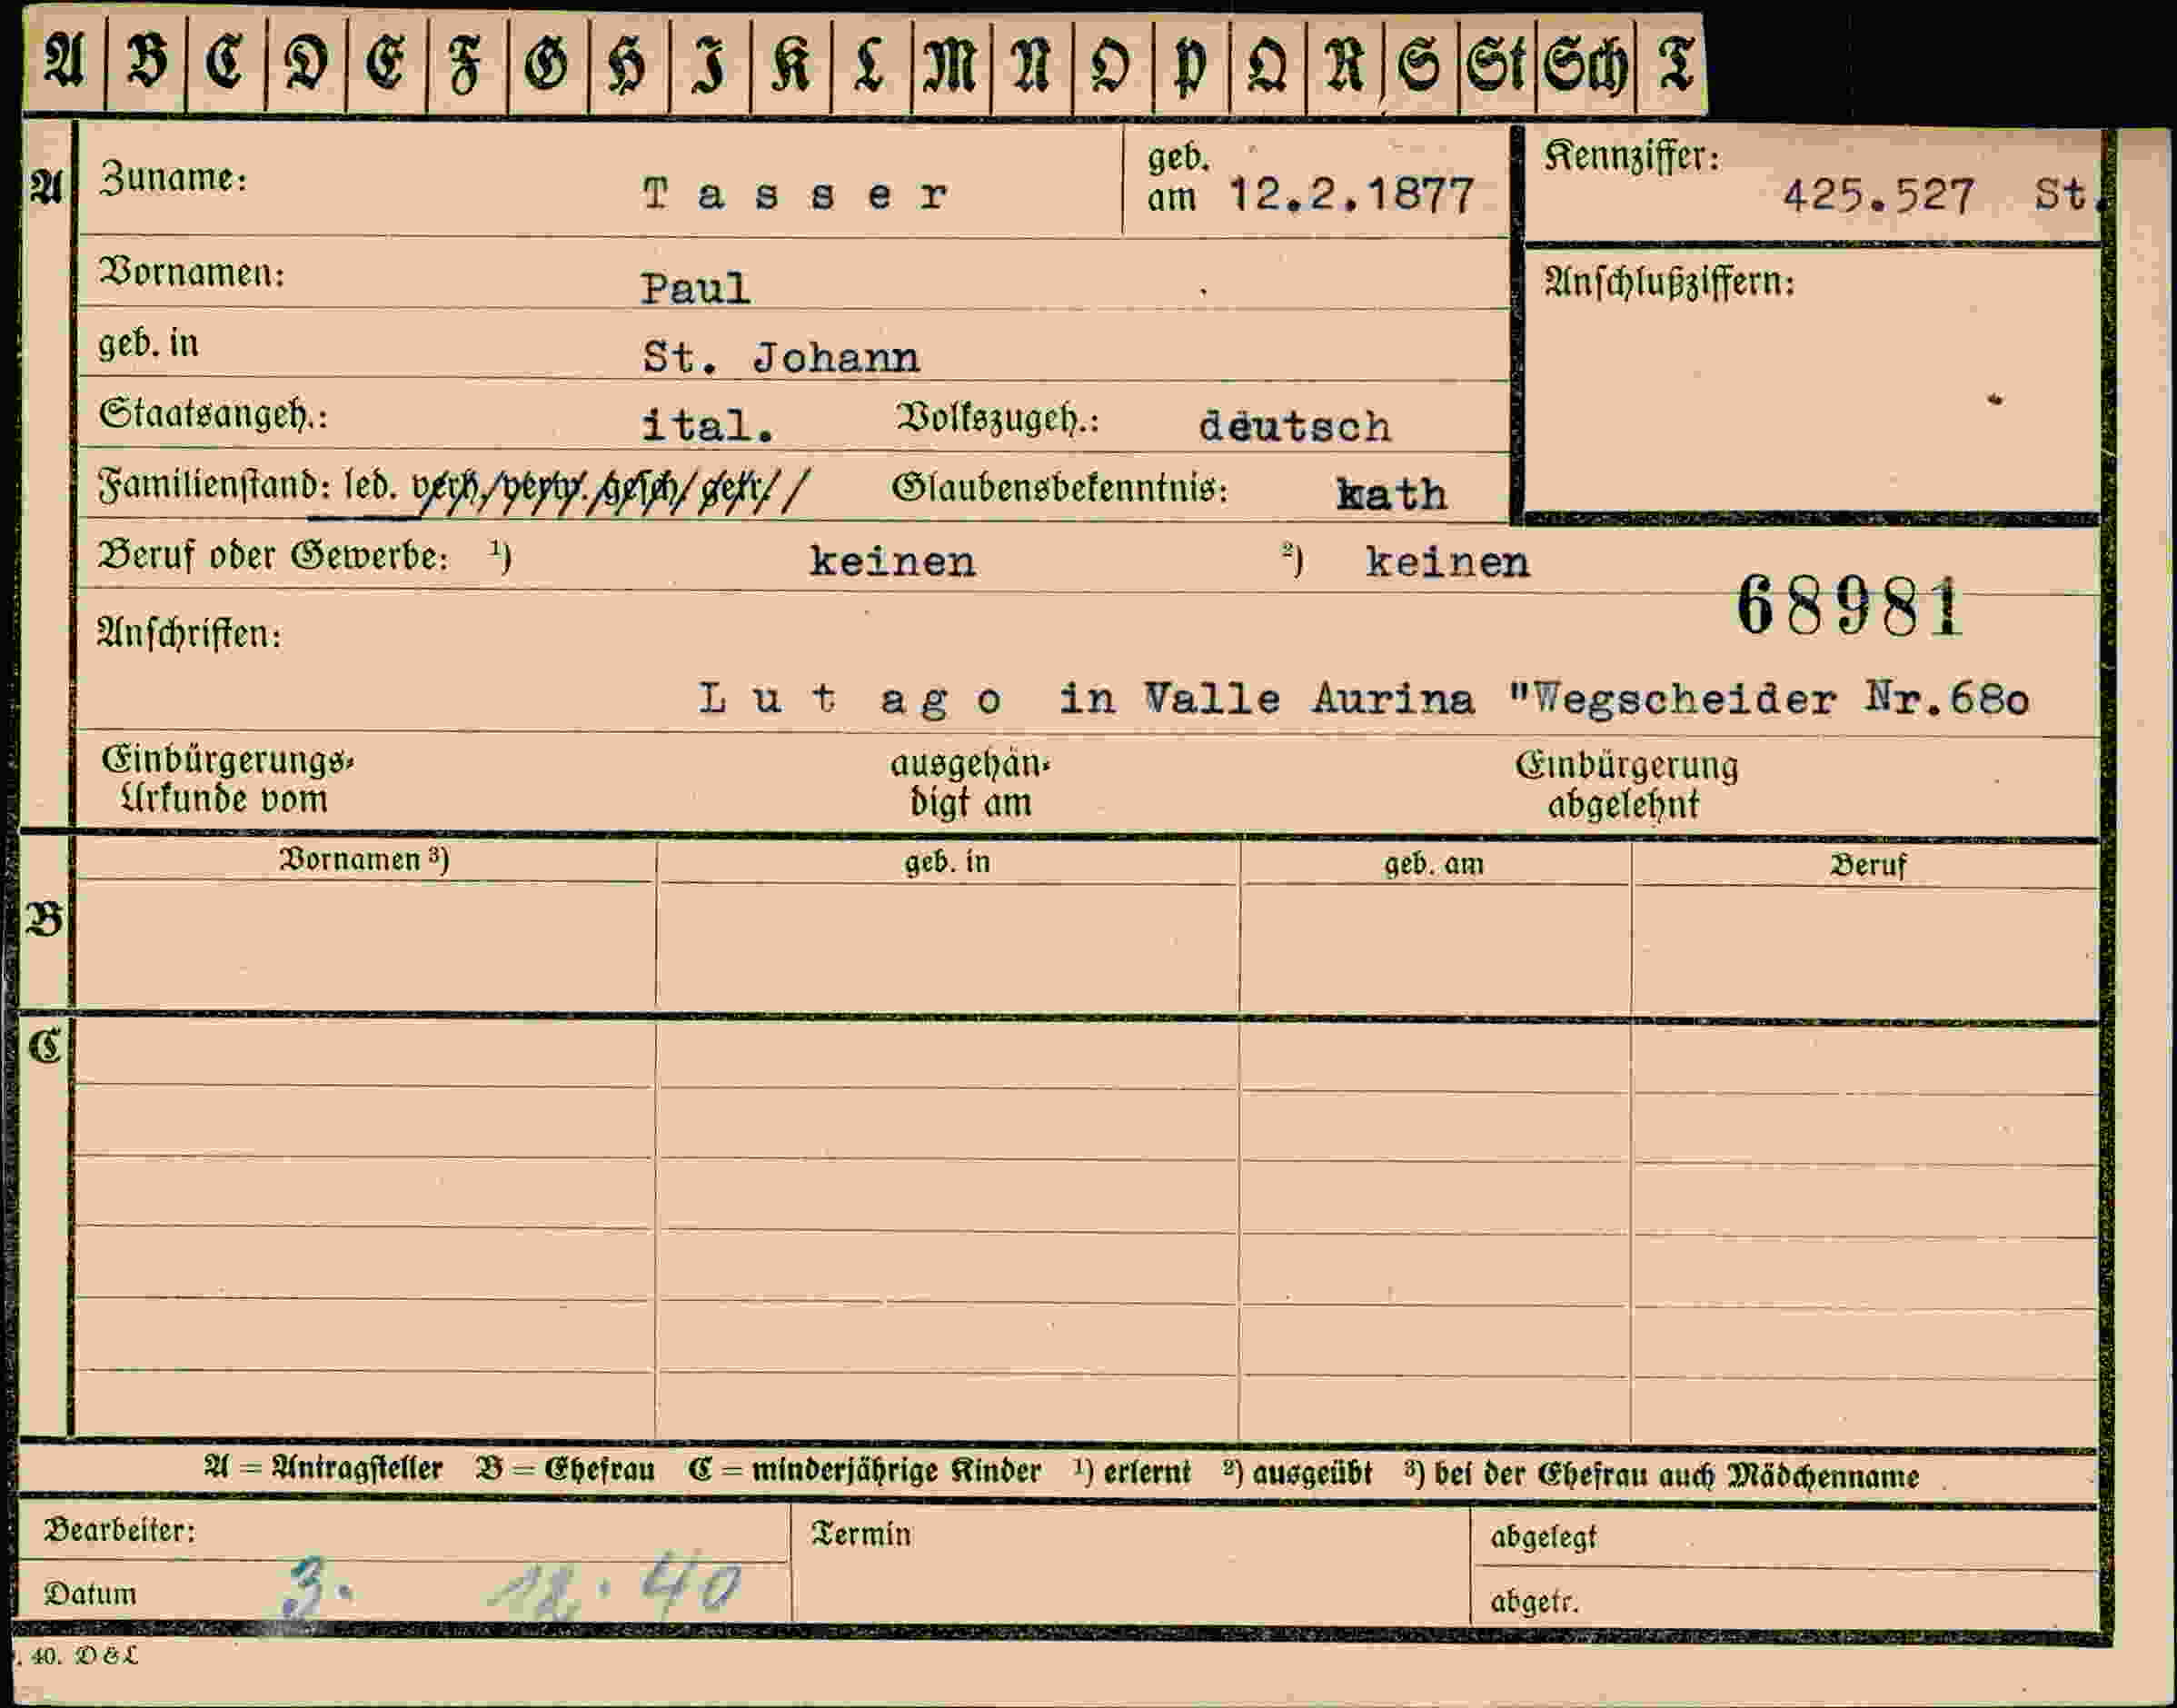 A B C D E F G H I K L M N O P Q R S St Sch T
A
Zuname: Tasser geb. am 12.2.1877 Kennziffer: 425.527 St.
Vornamen: Paul Anschlußziffern:
geb. in St. Johann
Staatsangeh.: ital. Volkszugeh.: deutsch
Familienstand: led. verh./verw./gesch/getr// Glaubensbekenntnis: kath
Beruf oder Gewerbe: ¹) keinen ²) keinen
68981
Anschriften:
Lutago in Valle Aurina "Wegscheider Nr.68o
Einbürgerungs- ausgehän- Einbürgerung
Urkunde vom digt am abgelehnt
Vornamen ³) geb. in geb. am Beruf
B
C
A = Antragsteller B = Ehefrau C = minderjährige Kinder ¹) erlernt ²) ausgeübt ³) bei der Ehefrau auch Mädchenname
Bearbeiter: Termin abgelegt
Datum 3. 12. 40 abgetr.
. 40. D & L